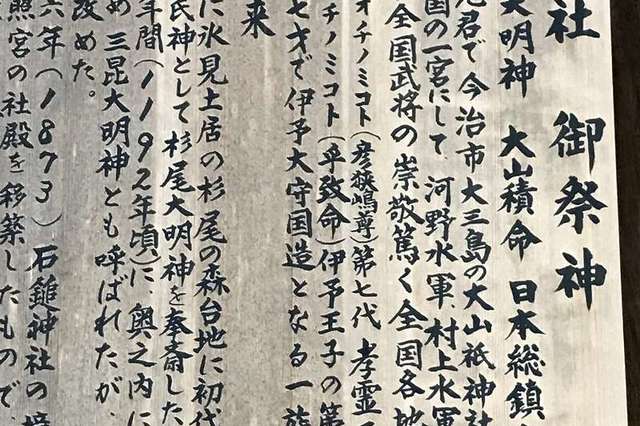 社 御祭神
大明神 大山積命 日本総鎮
兄君で今治市大三島の大山祇神社
国の一宮にして、河野水軍、村上水軍
全国武将の崇敬篤く全国各地
オチノミコト(彦狭嶋尊)第七代 孝霊
チノミコト(乎致命)伊予王子の第
七才で伊予大守国造となる一族
来
に氷見土居の杉尾の森台地に初代
氏神として杉尾大明神を奉斎した
年間(1192年頃)に、奥之内に
め三昆大明神とも呼ばれたが、
改めた。
六年(1873)石鎚神社の境
熊宮の社殿を移築したもので、